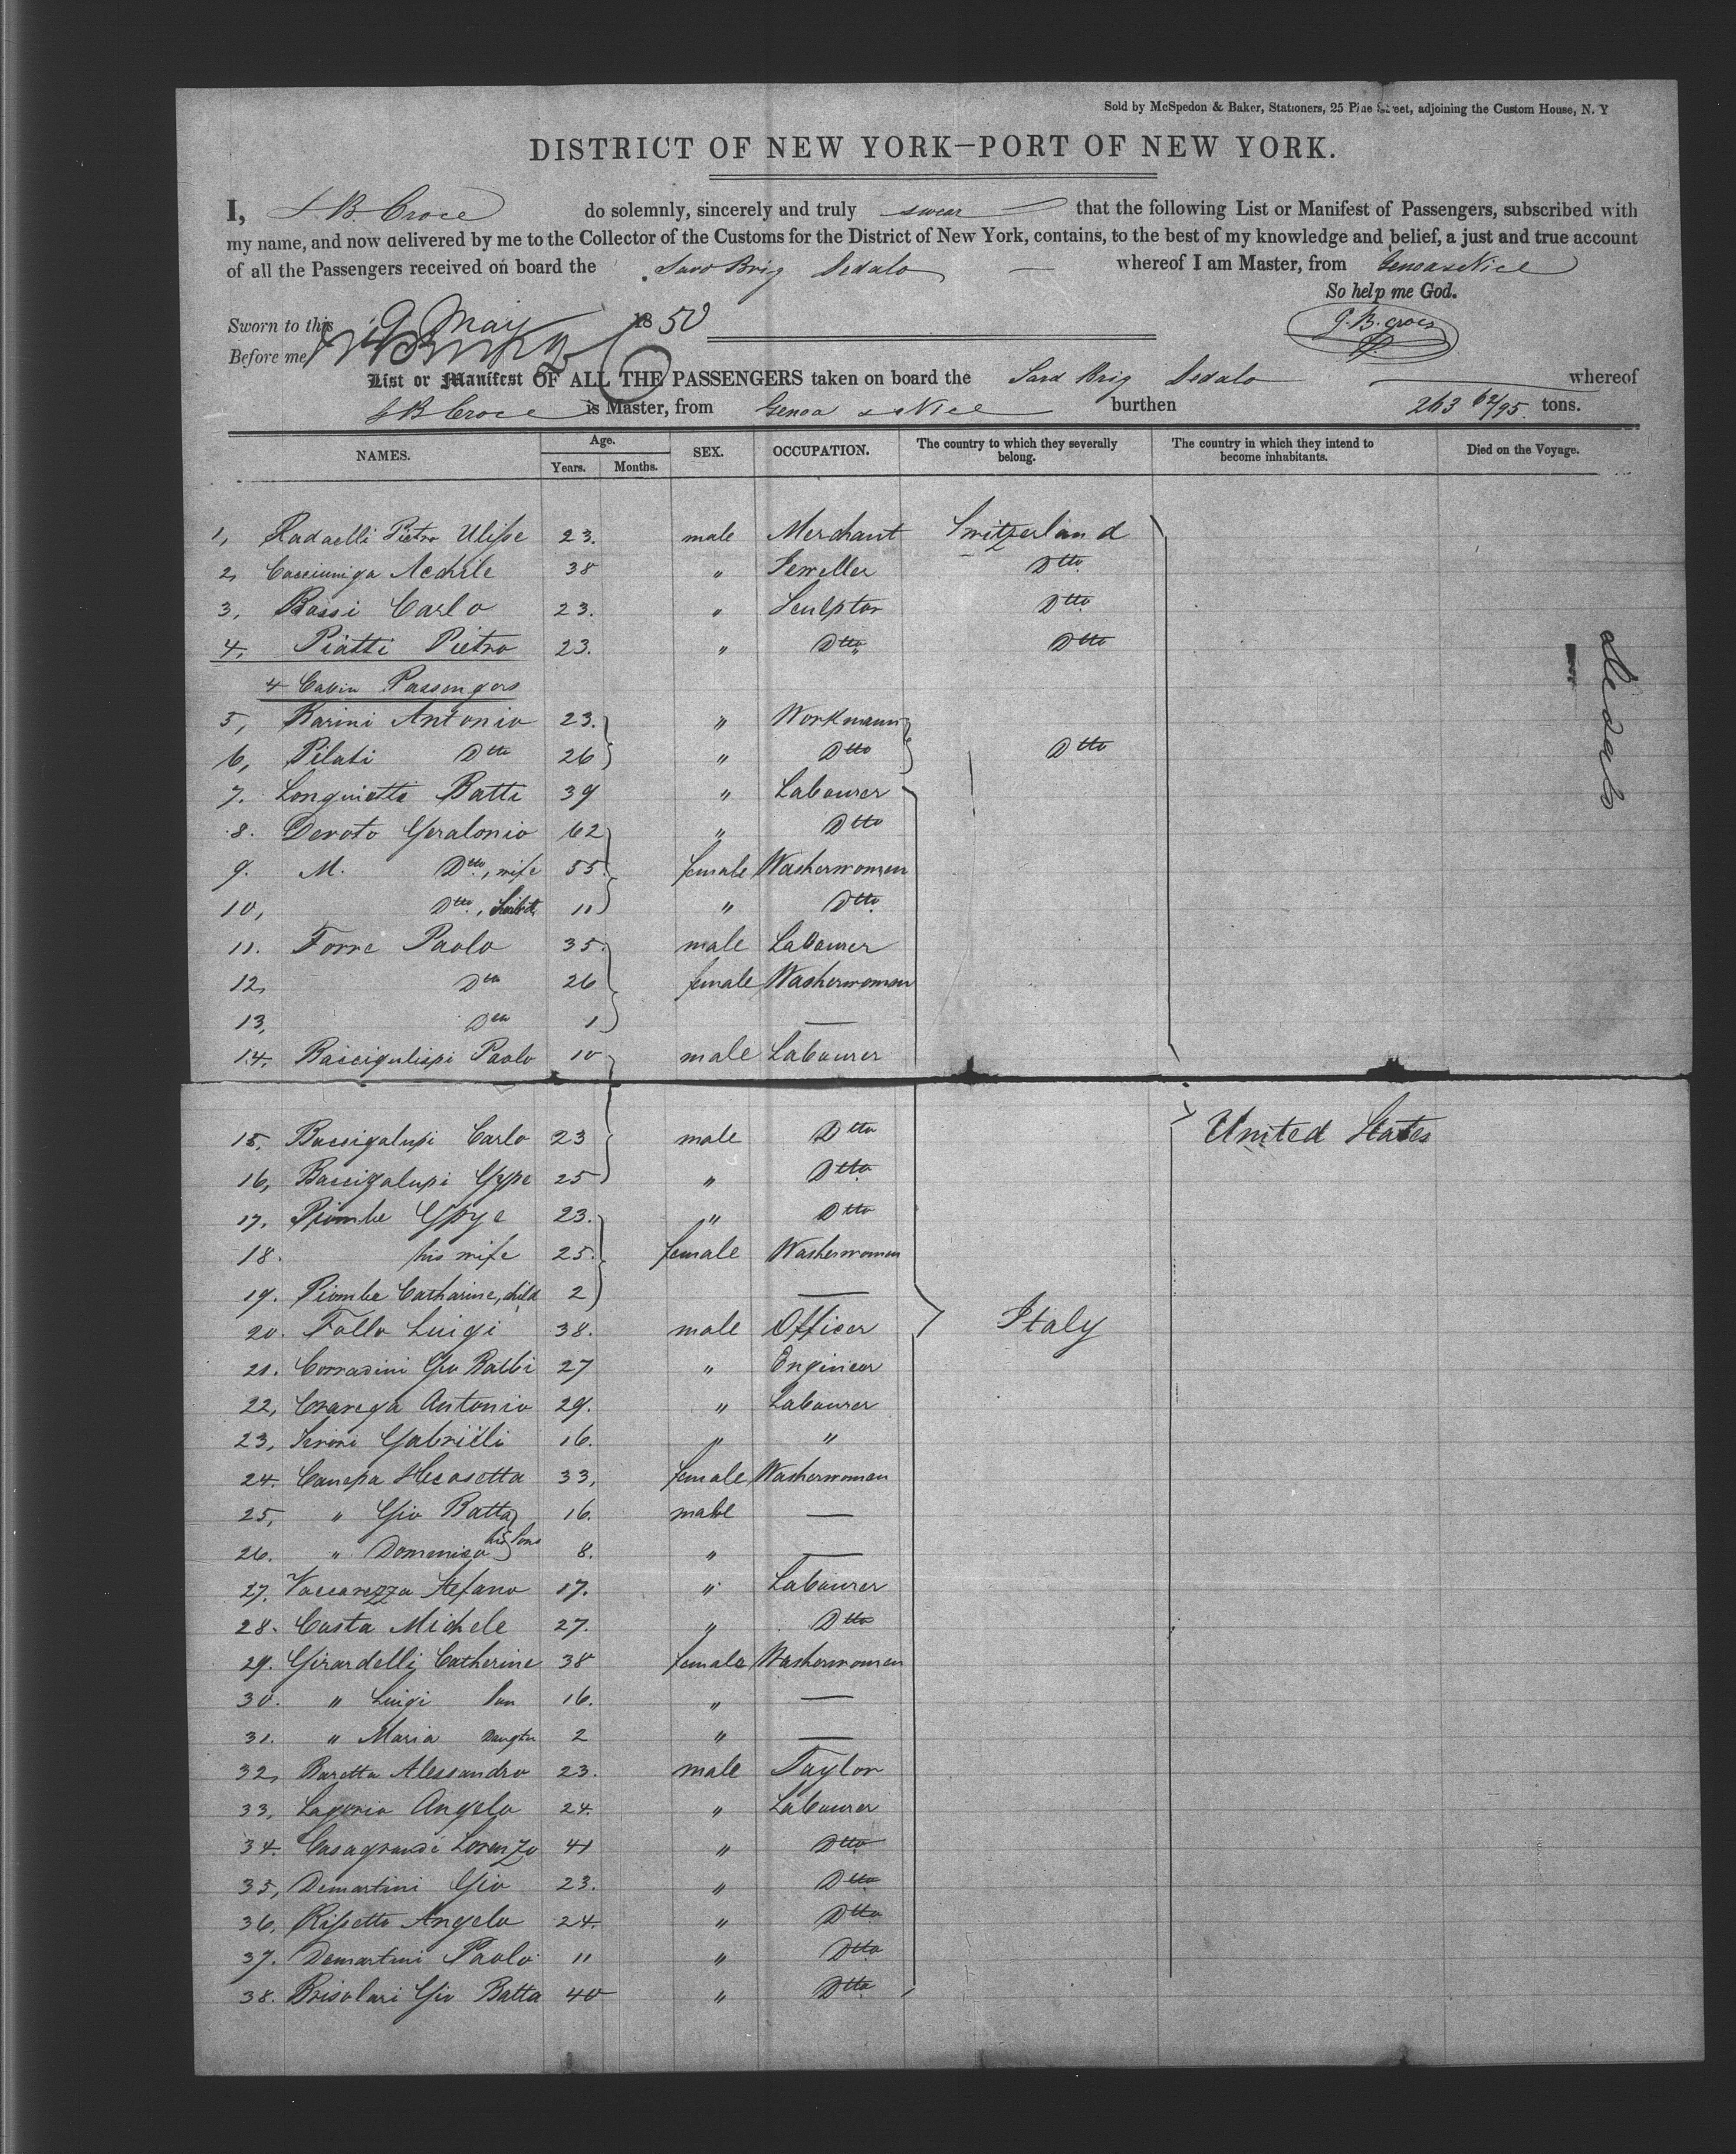 Sold by McSpedon & Baker, Stationers, 25 Pine Street, adjoining the Custom House, N. Y
DISTRICT OF NEW YORK—PORT OF NEW YORK.
I, J. B. Croce do solemnly, sincerely and truly swear that the following List or Manifest of Passengers, subscribed with
my name, and now delivered by me to the Collector of the Customs for the District of New York, contains, to the best of my knowledge and belief, a just and true account
of all the Passengers received on board the Sard Brig Dedalo whereof I am Master, from Genoa & Nice
So help me God.
Sworn to this 9 May 1850
G. B. Croce
Before me
List or Manifest OF ALL THE PASSENGERS taken on board the Sard Brig Dedalo whereof
J B Croce is Master, from Genoa & Nice burthen 263 62/95. tons.
NAMES. Age. Years. Months. SEX. OCCUPATION. The country to which they severally belong. The country in which they intend to become inhabitants. Died on the Voyage.
1, Radaelli Pietro Ulisse 23. male Merchant Switzerland
2, Achile 38 " Jeweller Dtto
3, Bossi Carlo 23. " Sculptor Dtto
4, Piatti Pietro 23. " Dtto " Dtto
4 Cabin Passengers
5, Barini Antonio 23. " Workmann
6, Pilati Dtto 26 " Dtto Dtto
7. Longinotti Batta 39 " Labourer
8. Devoto 62 " Dtto
9. M. Dtto, wife 55 female Washerwoman
10, Dtto, 11 " Dtto
11. Torre Paolo 35. male Labourer
12, Dtto 26 female Washerwoman
13, Dtto 1 —
14. Baccigalupi Paolo 10 male Labourer
15, Baccigalupi Carlo 23 male Dtto United States
16, Baccigalupi 25 " Dtto
17. Piombe 23. " Dtto
18. his wife 25. female Washerwoman
19. Piombe Catharine, child 2 —
20. Follo Luigi 38. male Officer Italy
21. Corradini Gio Balbi 27 " Engineer
22, Cravega Antonio 29. " Labourer
23, Gabrielli 16. " "
24. Canepa 33, female Washerwoman
25, " Gio Batta 16. male —
26. " Domenico his Sons 8. " —
27. Vaccarezza Stefano 17. " Labourer
28. Costa Michele 27. " Dtto
29. Girardelli Catherine 38 female Washerwoman
30. " Luigi Son 16. " —
31. " Maria Daughter 2 " —
32, Baretta Alessandro 23. male Taylor
33, Angelo 24. " Labourer
34. Casagrande Lorenzo 41 " Dtto
35, Demartini Gio 23. " Dtto
36, Rissetto Angelo 24. " Dtto
37. Demartini Paolo 11 " Dtto
38. Brisolari Gio Batta 40 " Dtto